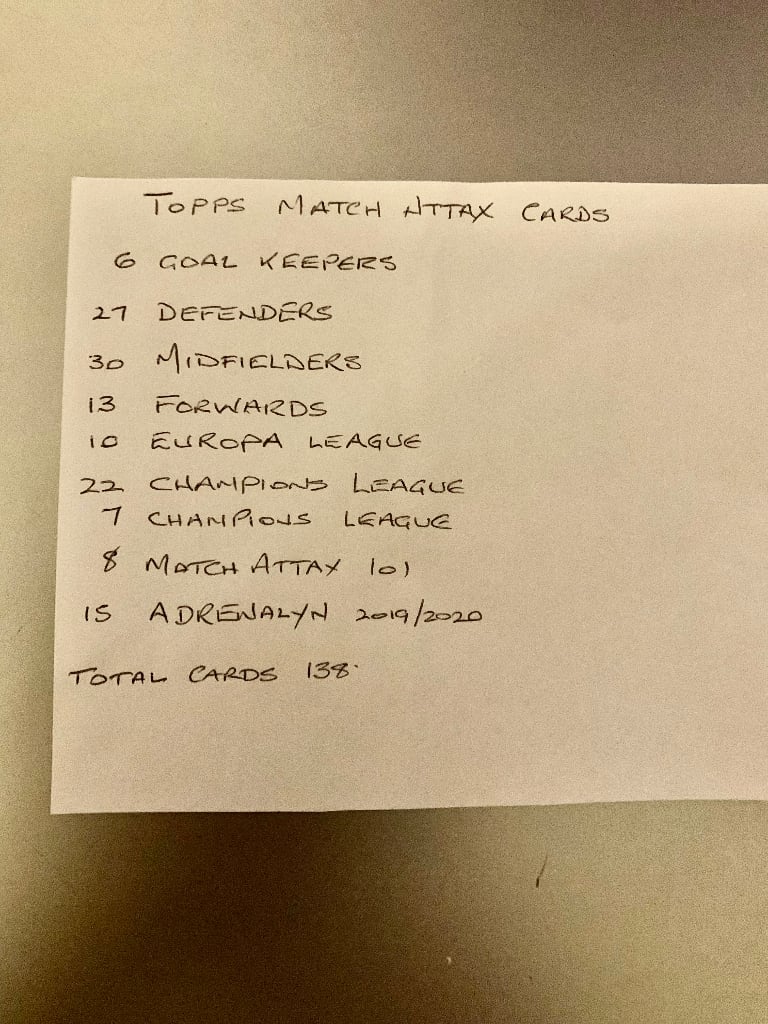 TOPPS MATCH ATTAX CARDS
6 GOAL KEEPERS
27 DEFENDERS
30 MIDFIELDERS
13 FORWARDS
10 EUROPA LEAGUE
22 CHAMPIONS LEAGUE
7 CHAMPIONS LEAGUE
8 MATCH ATTAX 101
15 ADRENALYN 2019/2020
TOTAL CARDS 138.